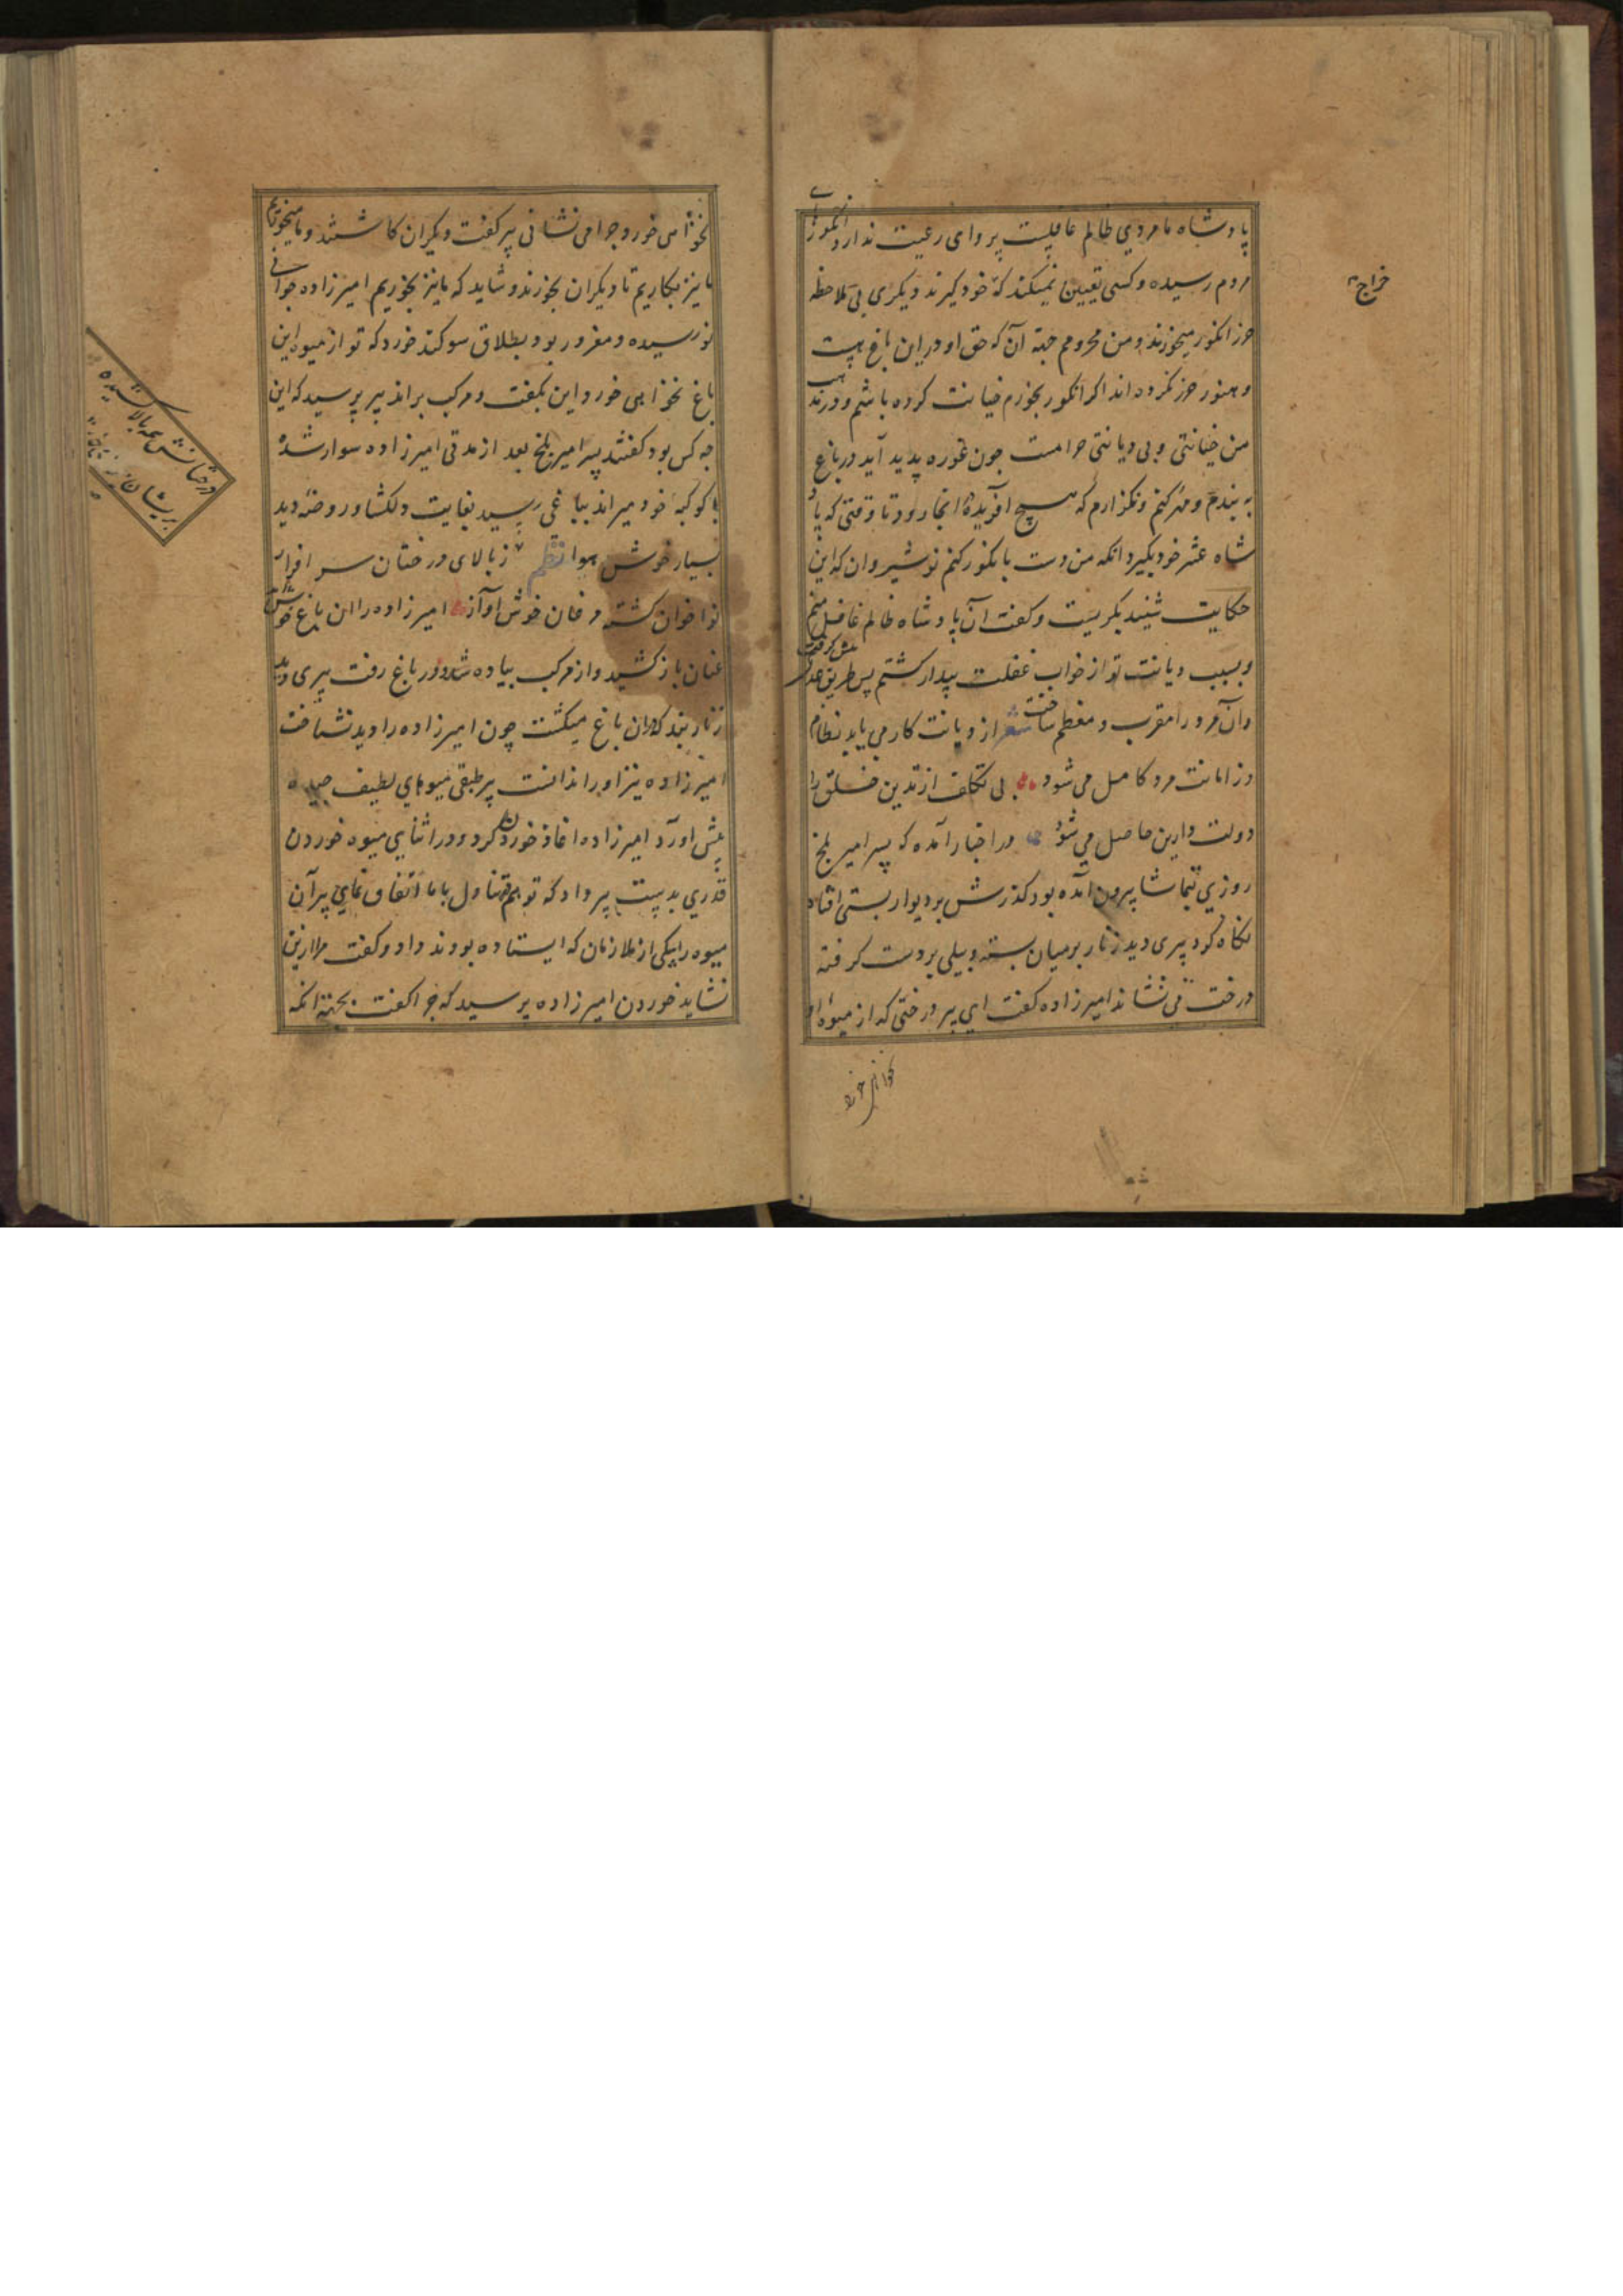 پادشاه ما مردی ظالم غافلست پروای رعیت ندارد انگورهای
مردم رسیده و کسی تعیین نمیکند که خود گیرند دیگری بی ملاحظه
حرز انگور میخورند و من محرومم جهة آن که حق او در این باغ هست
و هنوز حرز نکرده اند اگر انگور بخورم خیانت کرده باشم و در مذهب
من خیانتی و بی دیانتی حرامست چون غوره پدید آید در باغ
به بندم و مهر کنم و نگذارم که هیچ آفریدهٔ انجا رود تا وقتی که پاد
شاه عشر خود بگیرد انگه من دست بانگور کنم نوشیروان که این
حکایت شنید بگریست و گفت آن پادشاه ظالم غافل منم
و بسبب دیانت تو از خواب غفلت بیدار گشتم پس طریق عدل پیش گرفت
و آن مرد را مقرب و معظم ساخت شعر از دیانت کار می یابد نظام
وز امانت مرد کامل می شود بی تکلف از تدین خلق را
دولت دارین حاصل می شود در اخبار آمده که پسر امیر بلخ
روزی بتماشا بیرون آمده بود گذرش بر دیوار بستی افتاد
نگاه کرد پیری دید زنار بر میان بسته و بیلی بر دست گرفته
درخت می نشاند امیرزاده گفت ای پیر درختی که از میوهٔ او
نخواهی خورد
خراج
نخواهی خورد چرا می نشانی پیر گفت دیگران کاشتند و ما میخوریم
ما نیز بکاریم تا دیگران بخورند و شاید که ما نیز بخوریم امیرزاده جوانی
نورسیده و مغرور بود بطلاق سوگند خورد که تو از میوه این
باغ نخواهی خورد این بگفت و مرکب براند پیر پرسید که این
چه کس بود گفتند پسر امیر بلخ بعد از مدتی امیرزاده سوار شده
با کوکبه خود میراند بباغی رسید بغایت دلگشا و روضه دید
بسیار خوش هوا نظم ز بالای درختان سر افراز
نواخوان گشته مرغان خوش آواز امیرزاده را ان باغ خوش
عنان باز کشید و از مرکب پیاده شد و در باغ رفت پیری دید
زنار بند که دران باغ میگشت چون امیرزاده را دید نشناخت
امیرزاده نیز او را ندانست پیر طبقی میوهای لطیف چیده
پیش اورد امیرزاده اغاز خوردن کرد و در اثنای میوه خوردن
قدری بدست پیر داد که تو هم تناول با ما اتفاق نمای پیر آن
میوه را بیکی از ملازمان که ایستاده بودند داد و گفت مرا ازین
نشاید خوردن امیرزاده پرسید که چرا گفت بجهة انکه
درختانش همه بالا کشیده